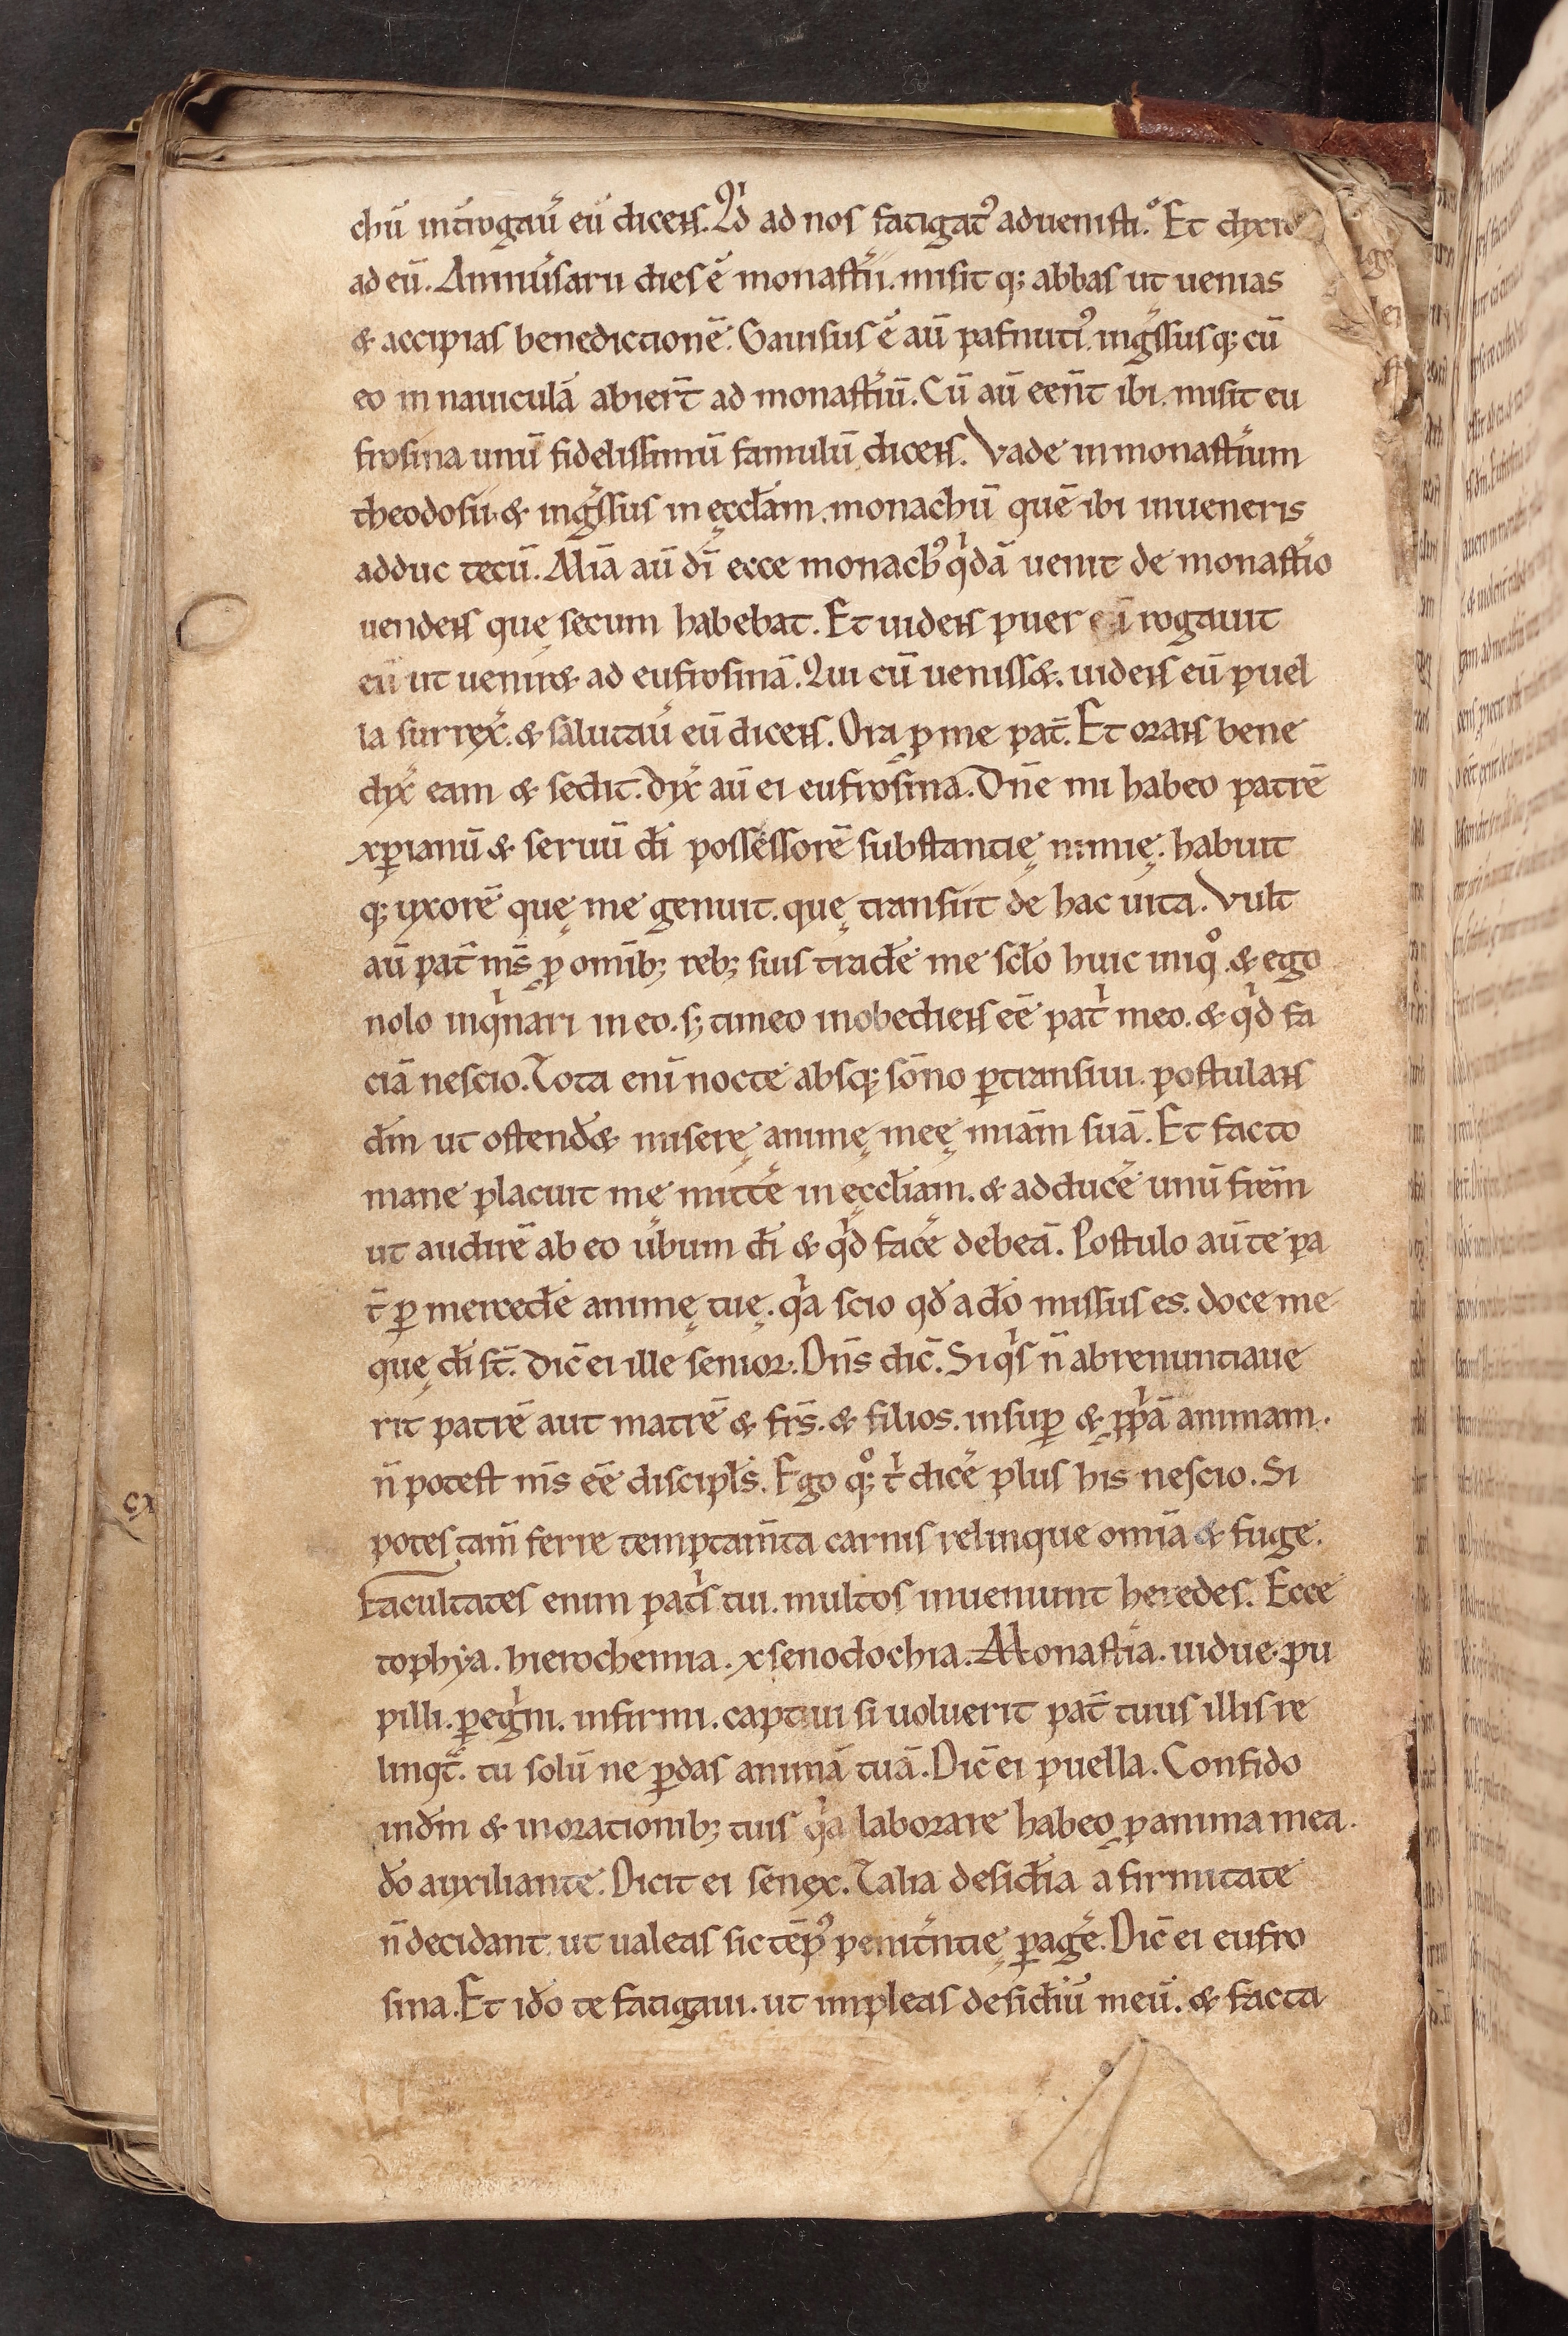 chū int̄rogaū eū dicens. Qͥd ad nos fatigatꝰ aduenisti. Et dixit
ad eū. Anniūsariū dies ē monast̄ii. misit q; abbas ut uenias
& accipias benedictionē. Gauisus ē aū pafnutiꝰ. inḡssusq; cū
eo in nauiculā abier̄t ad monast̄iū. Cū aū een̄t ibi. misit eu
frosina unū fidelissimū famulū dicens. Vade in monast̄ium
theodosii. & inḡssus in ęccl̄am. monachū quē ibi inueneris
adduc tecū. Aliā aū di ecce monachꝰ qͥdā uenit de monast̄io
uendens quę secum habebat. Et uidens puer eū rogauit
eū ut uenir& ad eufrosinā. Qui cū ueniss&. uidens eū puel
la surrex̄. & salutaū eū dicens. Ora ꝓ me pat̄. Et orans bene
dix̄ eam & sedit. dix̄ aū ei eufrosina. Dn̄e mi habeo patrē
xp̄ianū & seruū dī possessorē substantię nimię. habuit
q; uxorē quę me genuit. quę transiit de hac uita. Vult
aū pat̄ ms̄ ꝓ omīb; reb; suis trade̅ me scl̄o huic iniqͦ. & ego
nolo inqͥnari in eo. s; timeo inobediens eē patͥ meo. & qͥd fa
ciā nescio. Tota enī nocte absq; sōno ꝑtransiui. postulans
dm̄ ut ostend& miserę animę meę miām suā. Et facto
mane placuit me mitt̄e in ęccl̄iam. & adduce̅ unū frēm
ut audirē ab eo ūbum dī & qͥd face̅ debeā. Postulo aū te pa
t̄ ꝑ mercedē animę tuę. qͥa scio qd̄ a do̅ missus es. doce me
quę dī st̄. Dic̄ ei ille senior. Dn̄s dic̄. Si qͥs n̄ abrenuntiaue
rit patrē aut matrē & fr̄s. & filios. insuꝑ & ꝓpͥā animam.
n̄ potest ms̄ eē discipl̄s. Ego q;ͦ tͥ dice̅ plus his nescio. Si
potes tam̄ ferre temptam̄ta carnis relinque omīa & fuge.
Facultates enim patͥs tui. multos inueniunt heredes. Ecce
tophya. hierochemia. xsenodochia. Monast̄ia. uidue. pu
pilli. ꝑegͥni. infirmi. captiui si uoluerit pat̄ tuus illis re
linqt̄. tu solū ne ꝑdas animā tuā. Dic̄ ei puella. Confido
in dm̄ & in orationib; tuis qͥa laborare habeo ꝓ anima mea.
do̅ auxiliante. Dicit ei senex. Talia desid̄ia a firmitate
n̄ decidant ut ualeas sic tēpꝰ penit̄ntię ꝑage̅. Dic̄ ei eufro
sina. Et ido̅ te fatigaui. ut impleas desid̄iū meū. & facta
cx